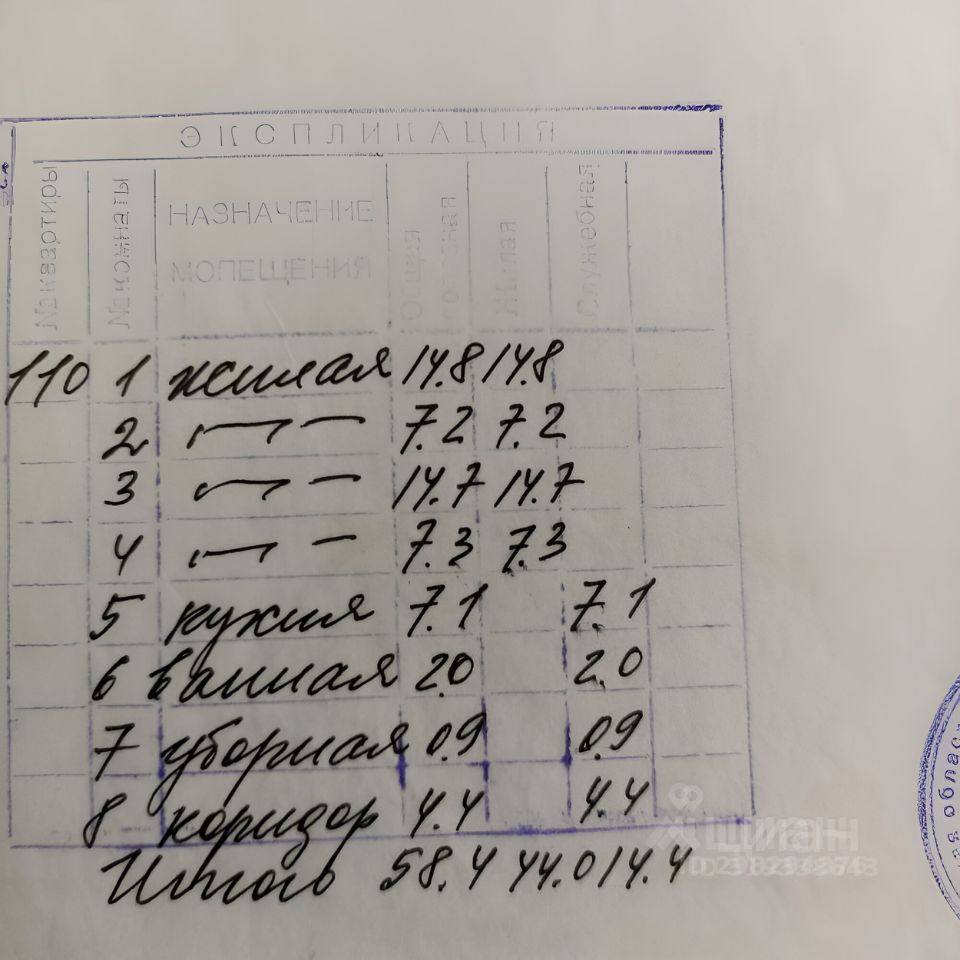 ЭКСПЛИКАЦИЯ
№ квартиры № комнаты НАЗНАЧЕНИЕ МОПЕЩЕНИЯ Общая Жилая Служебная
110 1 жилая 14.8 14.8
2 —〃— 7.2 7.2
3 —〃— 14.7 14.7
4 —〃— 7.3 7.3
5 кухня 7.1 7.1
6 ванная 2.0 2.0
7 уборная 0.9 0.9
8 коридор 4.4 4.4
Итого 58.4 44.0 14.4
ая облас